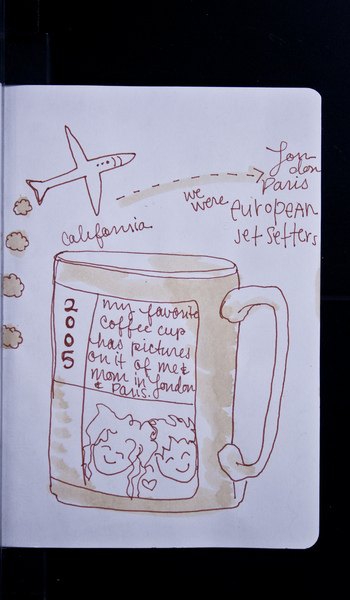 London
Paris
we
were
European
jet setters
California
2005
my favorite
coffee cup
has pictures
on it of me &
mom in London
& Paris.